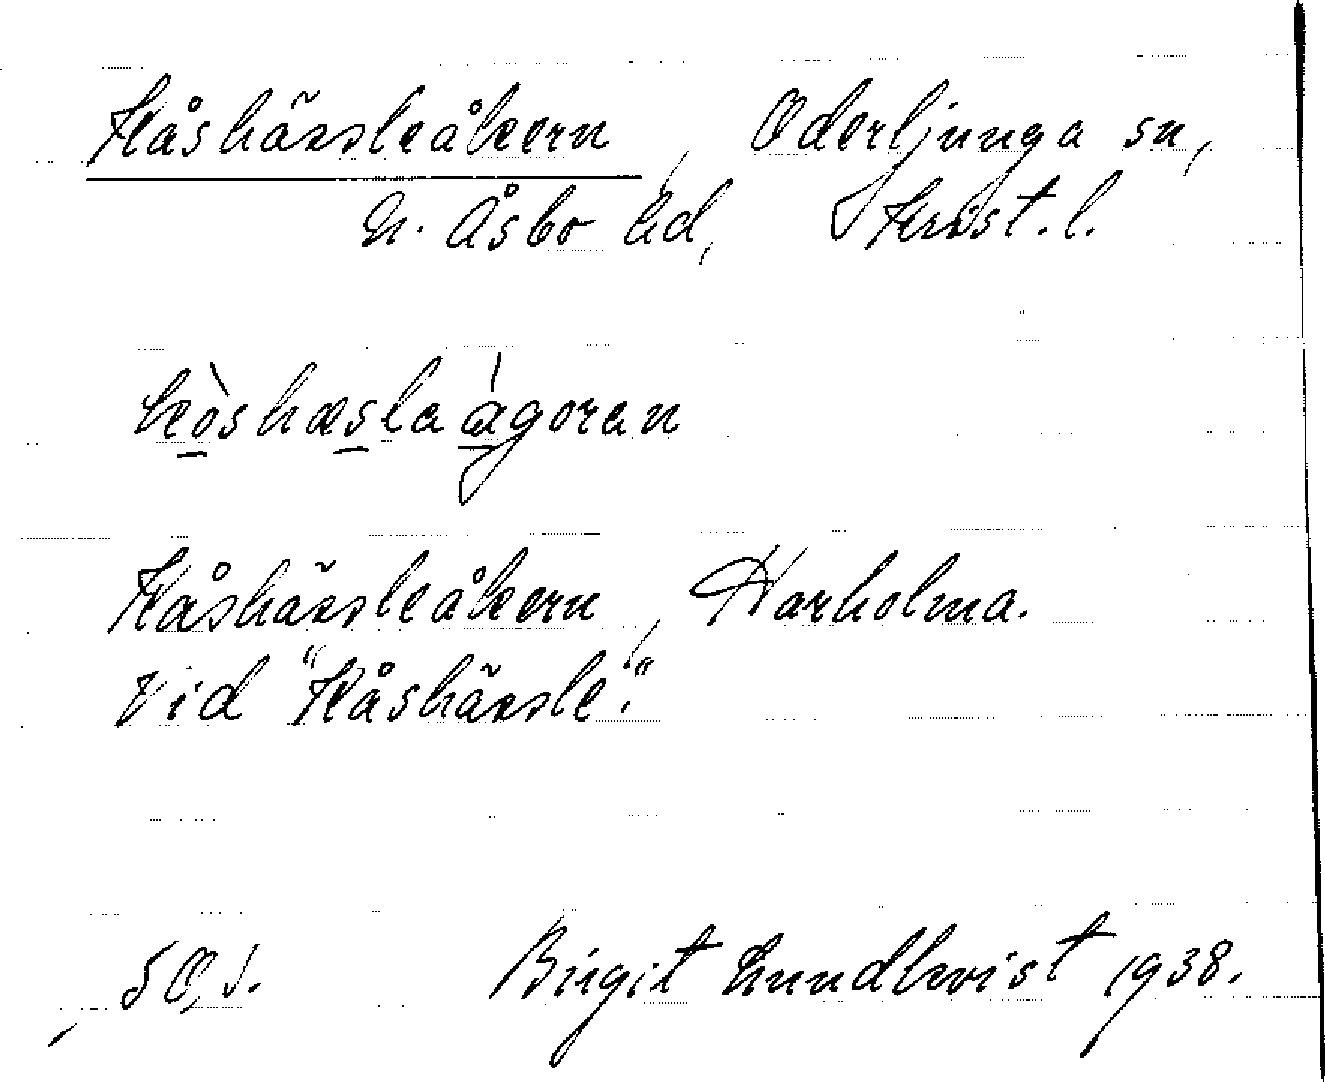 Kåshässleåkern, Oderljunga sn,
N. Åsbo hd, Krist. l.
kòshæslaágoran
Kåshässleåkern, Harholma.
Vid "Kåshässle".
Birgit Lundkvist 1938.